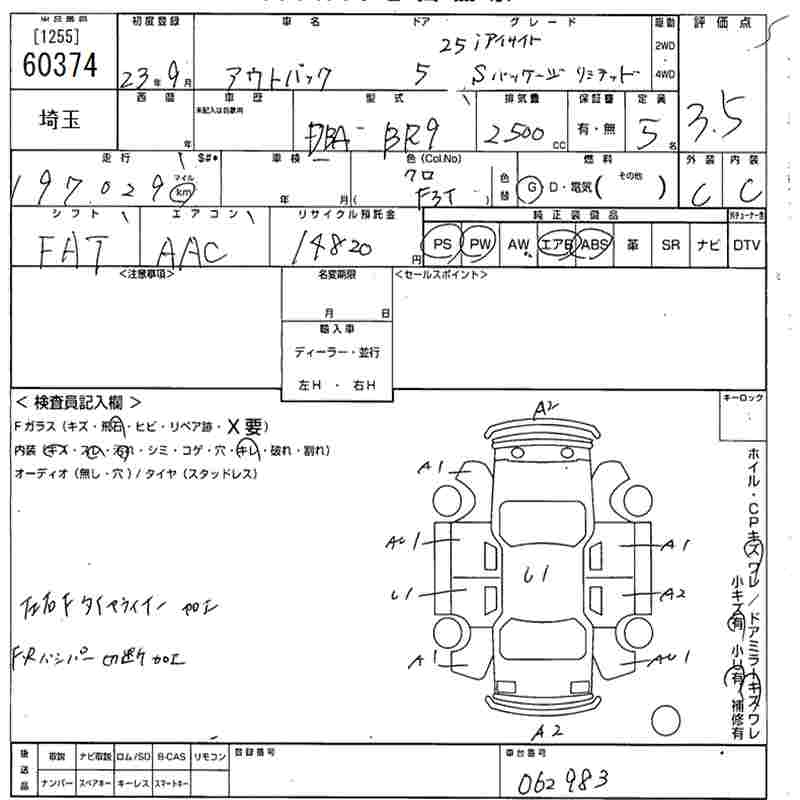 初度登録 車名 ドア グレード 駆動 評価点
[1255]
60374
23年9月 アウトバック 5 25iアイサイト
Sパッケージ リミテッド
2WD
4WD
3.5
埼玉
西暦 車歴 型式 排気量 保証書 定員
未記入は自家用
年 DBA-BR9 2500CC 有・無 5名
走行 $#* 車検 色(Col.No) 燃料 外装 内装
197,029 マイル km 年 月 クロ
(F3T) 色替 G D・電気(その他) C C
シフト エアコン リサイクル預託金 純正装備品
FAT AAC 14820円 PS PW AW エアB ABS 革 SR ナビ DTV
<注意事項> 名変期限 <セールスポイント>
月 日
輸入車
ディーラー・並行
左H・右H
キーロック
<検査員記入欄>
Fガラス(キズ・飛石・ヒビ・リペア跡・X要)
内装(キズ・スレ・汚れ・シミ・コゲ・穴・キレ・破れ・割れ)
オーディオ(無し・穴)/タイヤ(スタッドレス)
A2
A1
AU1 A1
U1 U1 A2
A1 AU1
A2
F・Rバンパー 切遅ケ加工
ホイル・CPキズワレ/ドアミラーキズ/ワレ
小キズ有 小U有 補修有
後送品 取説 ナビ取説 ロム/SD B-CAS リモコン 登録番号 車台番号
ナンバー スペアキー キーレス スマートキー 062983